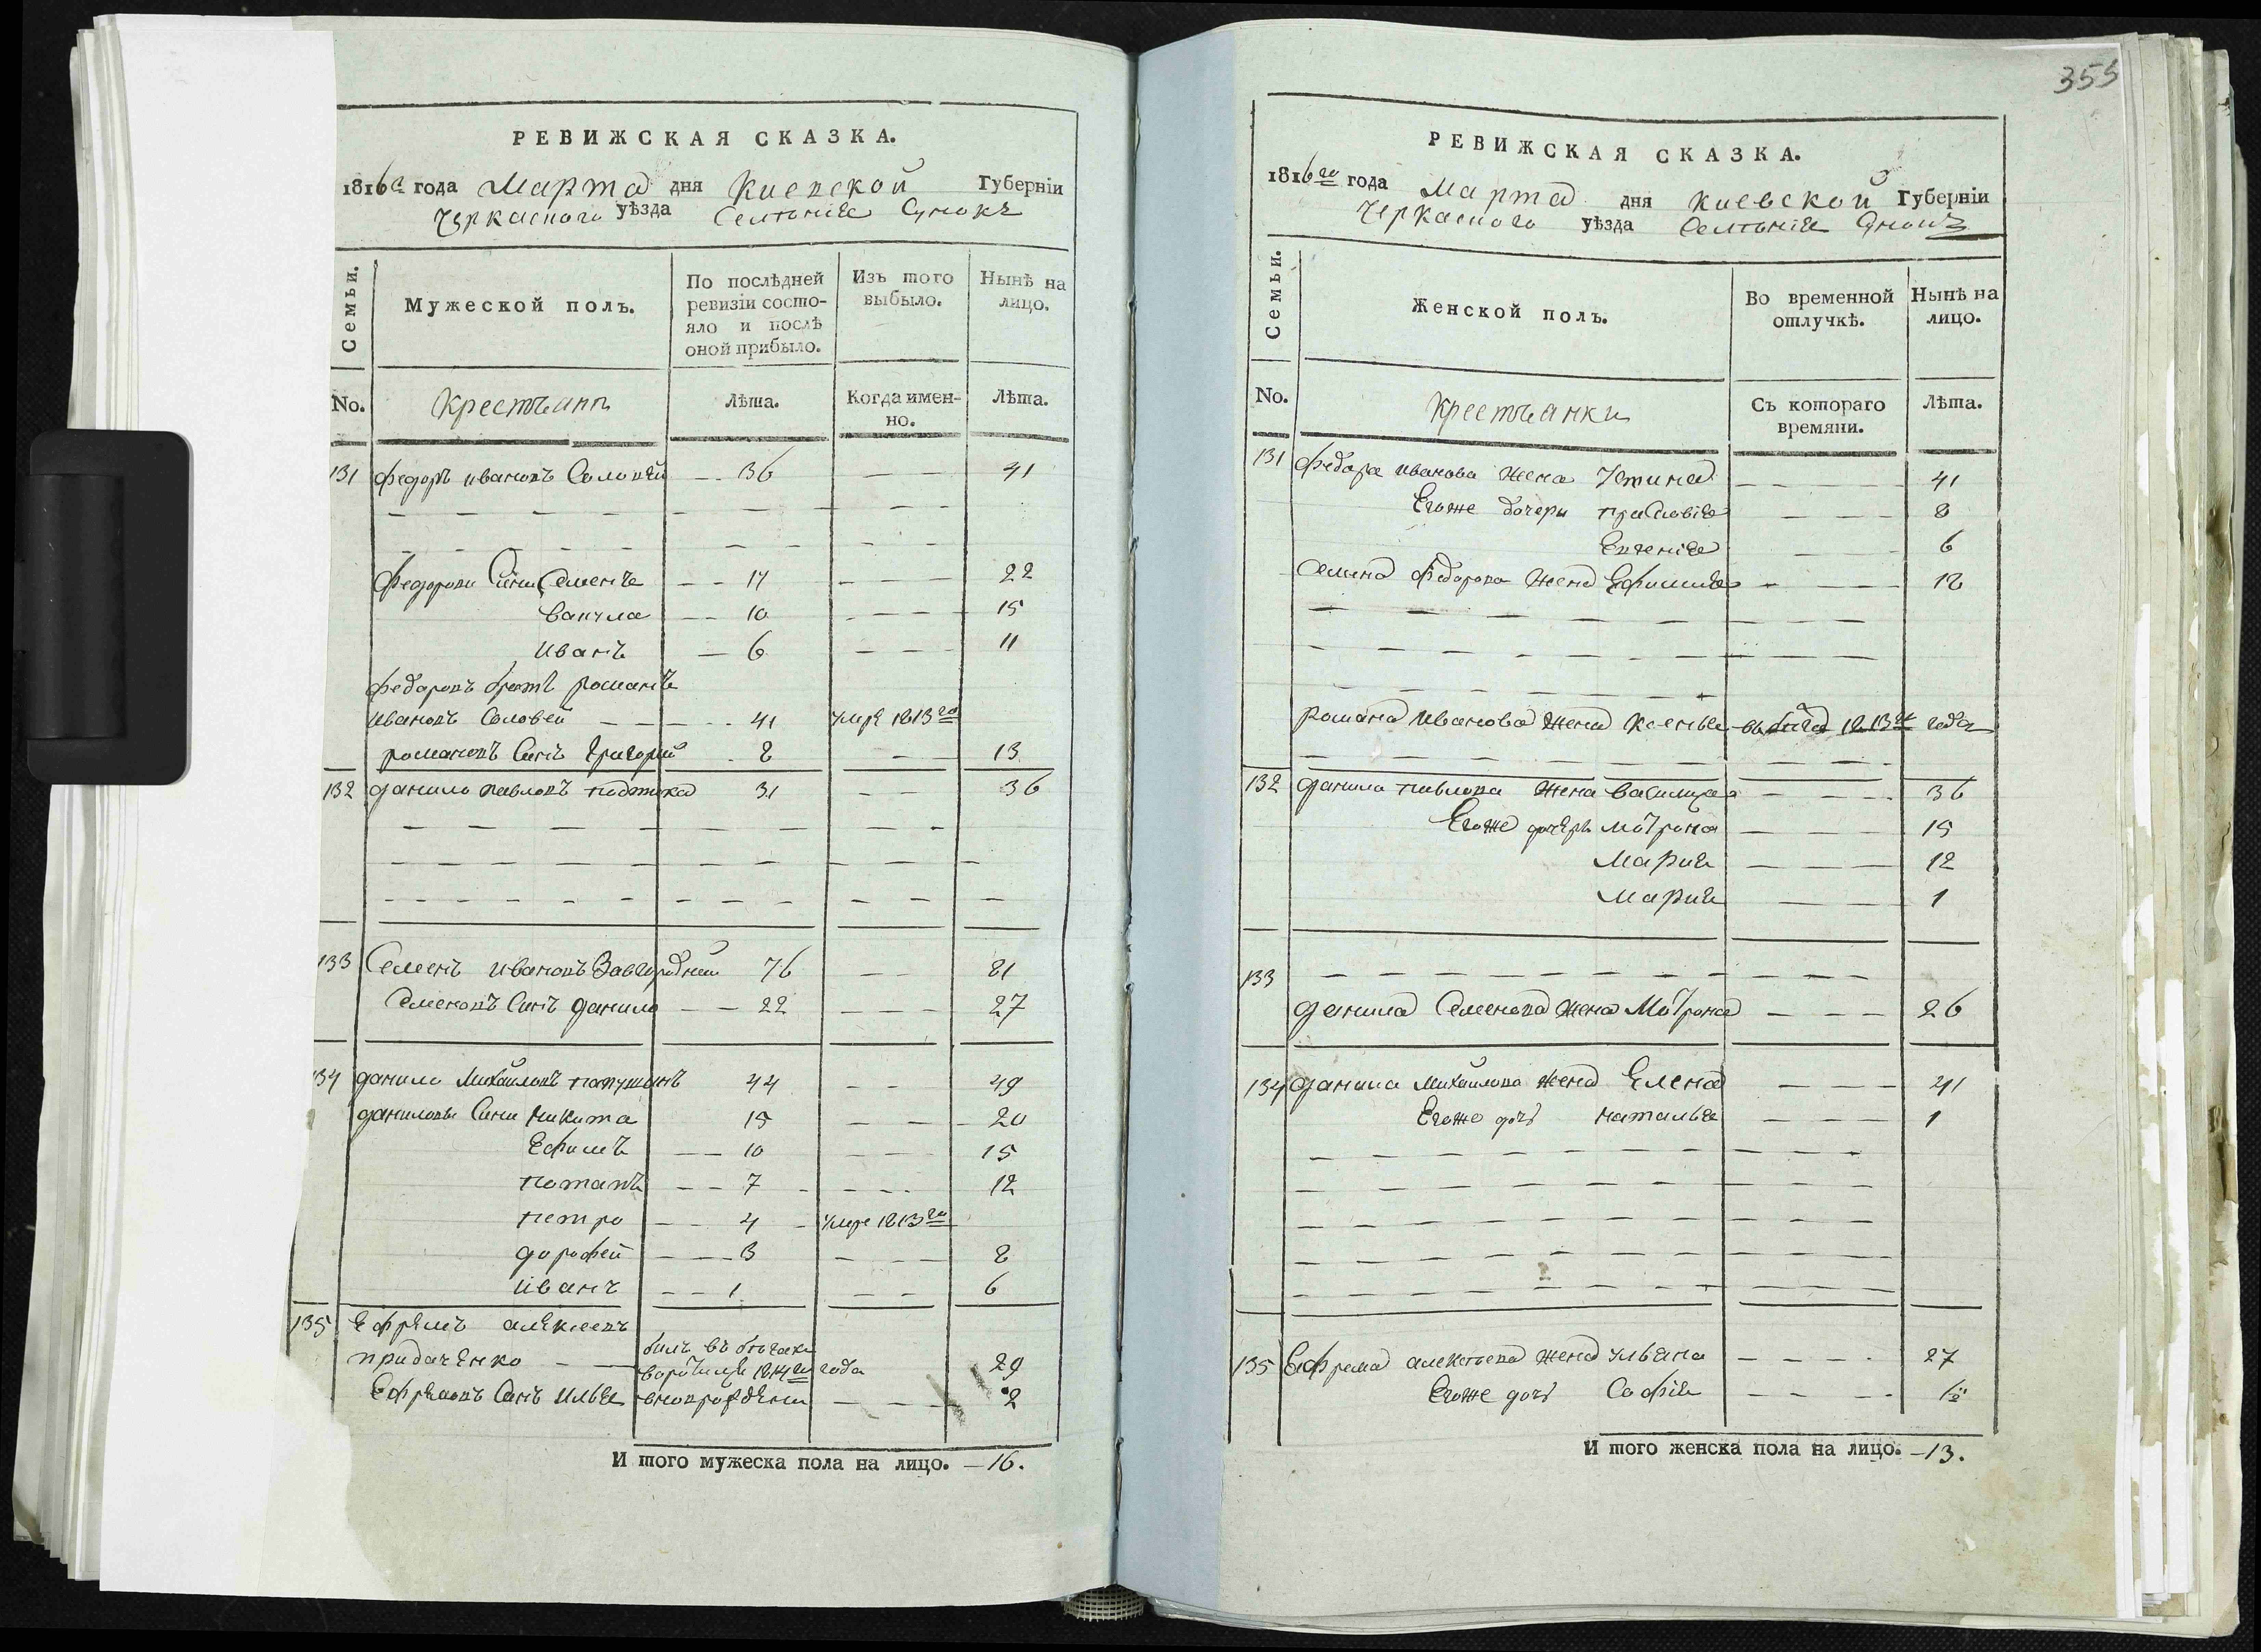 РЕВИЖСКАЯ СКАЗКА.
1816го года Марта дня Киевской Губерніи
Черкаского уѣзда Селенія
Семьи.
Мужеской полъ.
По послѣдней ревизіи состо-
яло и послѣ
оной прибыло.
Изъ того
выбыло.
Нынѣ на
лицо.
No.
Крестьянъ
Лѣта.
Когда имен-
но.
Лѣта.
131 федоръ ивановъ Соловей 36 41
федоровы Сини Семенъ 17 22
Вакула 10 15
иванъ 6 11
федоровъ братъ романъ
ивановъ Соловей 41 умре 1813го
романовъ Синъ Григорий 8 13
132 данило павловъ 31 36
133 Семенъ ивановъ Завгородний 76 81
Семеновъ Синъ данило 22 27
134 данило Михайловъ 44 49
даниловы Сини никита 15 20
Ефимъ 10 15
потапъ 7 12
петро 4 умре 1813го
дорофей 3 8
иванъ 1 6
135 Ефремъ алексеевъ
придаченко билъ въ бѣгахъ
1814го года 29
Ефремовъ Синъ илья вновророжденни 2
И того мужеска пола на лицо. — 16.
355
РЕВИЖСКАЯ СКАЗКА.
1816го года Марта дня киевской Губерніи
Черкаского уѣзда Селенія
Семьи.
Женской полъ.
Во временной
отлучкѣ.
Нынѣ на
лицо.
No.
Крестьянки
Съ котораго
времяни.
Лѣта.
131 федора иванова жена Устина 41
Егоже дочери 8
Евгенія 6
Семена федорова жена Ефимия 18
романа иванова жена Ксенья 1813го года
132 данила павлова жена василиса 36
Егоже дочерѣ мотрона 15
Мария 12
Мария 1
133
данила Семенова жена Мотрона 26
134 данила михайлова жена Елена 41
Егоже дочь наталья 1
135 Ефрема алексѣева жена ульяна 27
Егоже дочь Софія
И того женска пола на лицо. — 13.